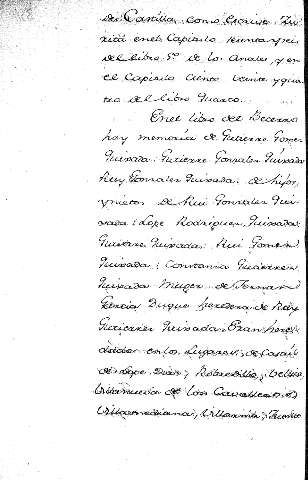 de Castilla, como escrive Zu-
rita en el Capitulo treinta y seis
del libro 5º de los Anales, y en
el Capitulo ciento veinte y qua-
tro del libro quarto.
En el libro del Becerro
hay memoria de Gutierre Gomez
Quixada, Gutierre Gonzalez Quixada
Ruy Gonzalez Quixada, de hijos
y nietos de Rui Gonzalez Qui-
xada: Lope Rodriguez Quixada,
Gutierre Quixada, Rui Gomez
Quixada; Constanza Gutierrez
Quixada Muger de Fernand
Garcia Duque heredera de Ruy
Gutierrez Quixada. Eran here-
dados en los lugares de
de Lope Diaz,
Villanueva de los Cavalleros,
Villamediana,